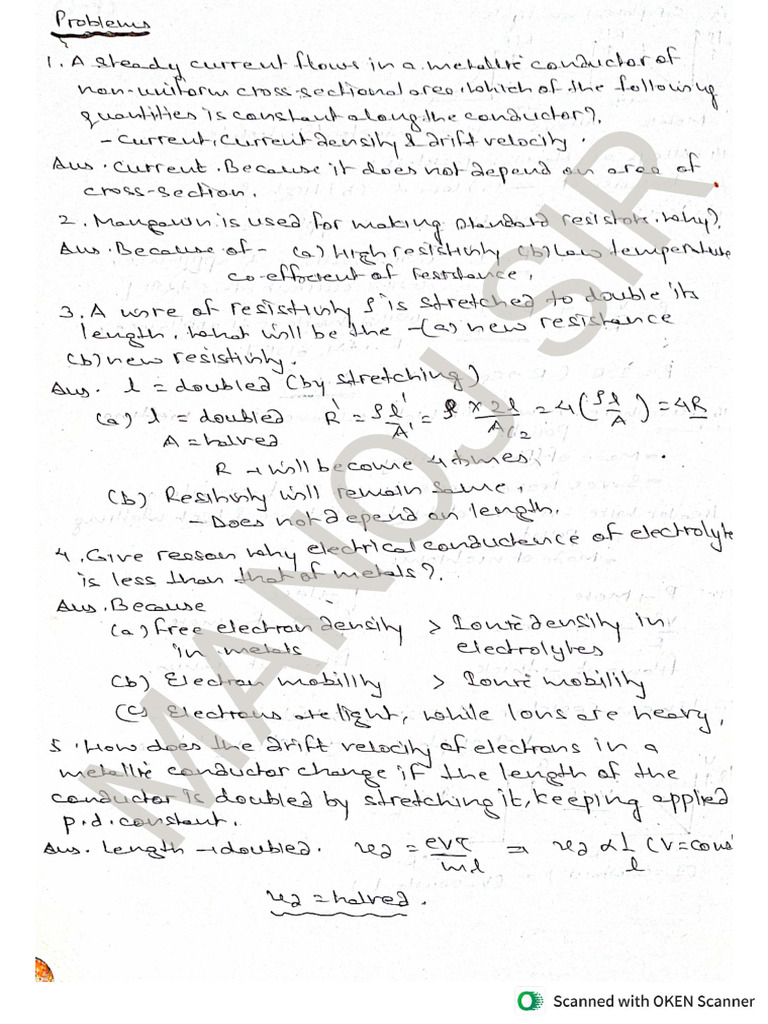 Problems
1. A steady current flows in a metallic conductor of
non-uniform cross-sectional area. Which of the following
quantities is constant along the conductor?
- Current, Current density & drift velocity.
Ans. Current. Because it does not depend on area of
cross-section.
2. Mangawn is used for making standard resistors. Why?
Ans. Because of - (a) High resistivity (b) Low temperature
co-efficient of resistance.
3. A wire of resistivity ρ is stretched to double its
length. What will be the - (a) new resistance
(b) new resistivity.
Ans. l = doubled (by stretching)
(a) l = doubled R' = ρl'/A' = ρ × 2l/A/2 = 4(ρl/A) = 4R
A = halved
R → will become 4 times.
(b) Resitivity will remain same.
- Does not depend on length.
4. Give reason why electrical conductance of electrolyte
is less than that of metals?
Ans. Because
(a) Free electron density > Ionic density in
in metals electrolytes
(b) Electron mobility > Ionic mobility
(c) Electrons are light, while Ions are heavy.
5. How does the drift velocity of electrons in a
metallic conductor change if the length of the
conductor is doubled by stretching it, keeping applied
p.d. constant.
Ans. Length → doubled. vd = eVτ/ml ⇒ vd α 1/l (V = cons
vd = halved.
MANOJ SIR
Scanned with OKEN Scanner